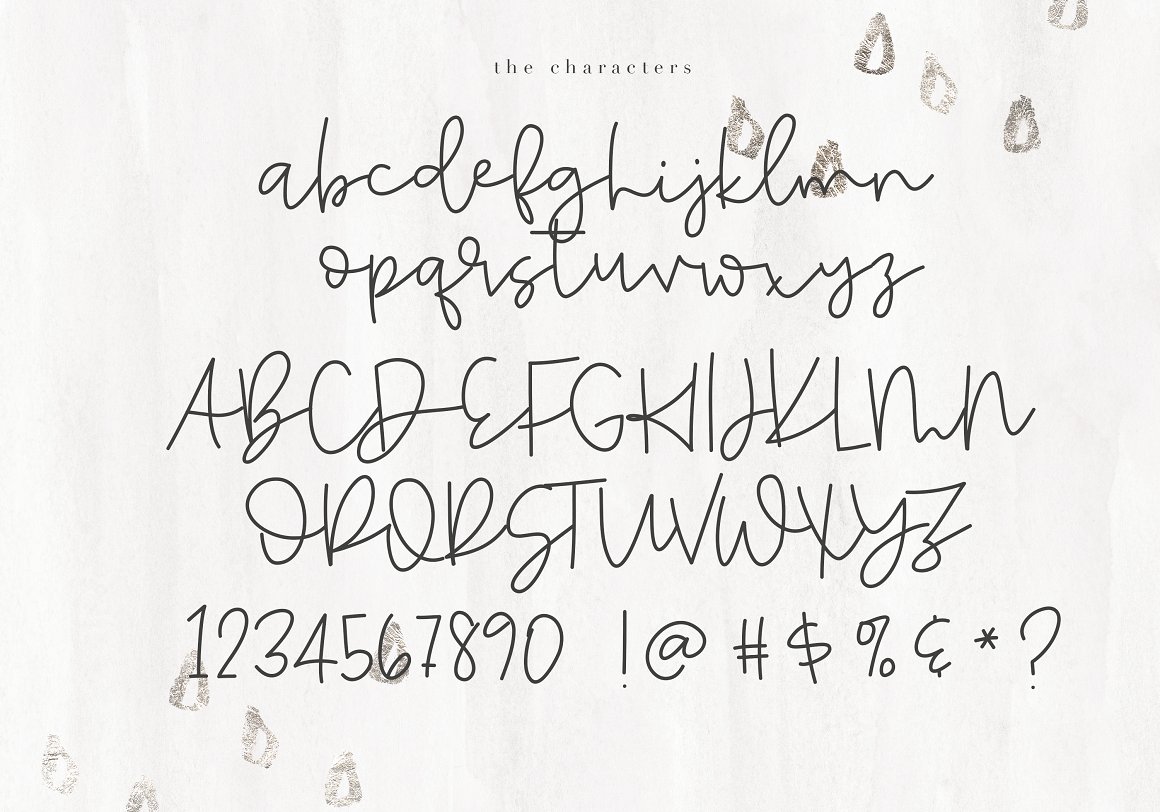 the characters
abcdefghijklmn
opqrstuvwxyz
ABCDEFGHIJKLMN
OPQRSTUVWXYZ
1234567890 !@#$%&*?